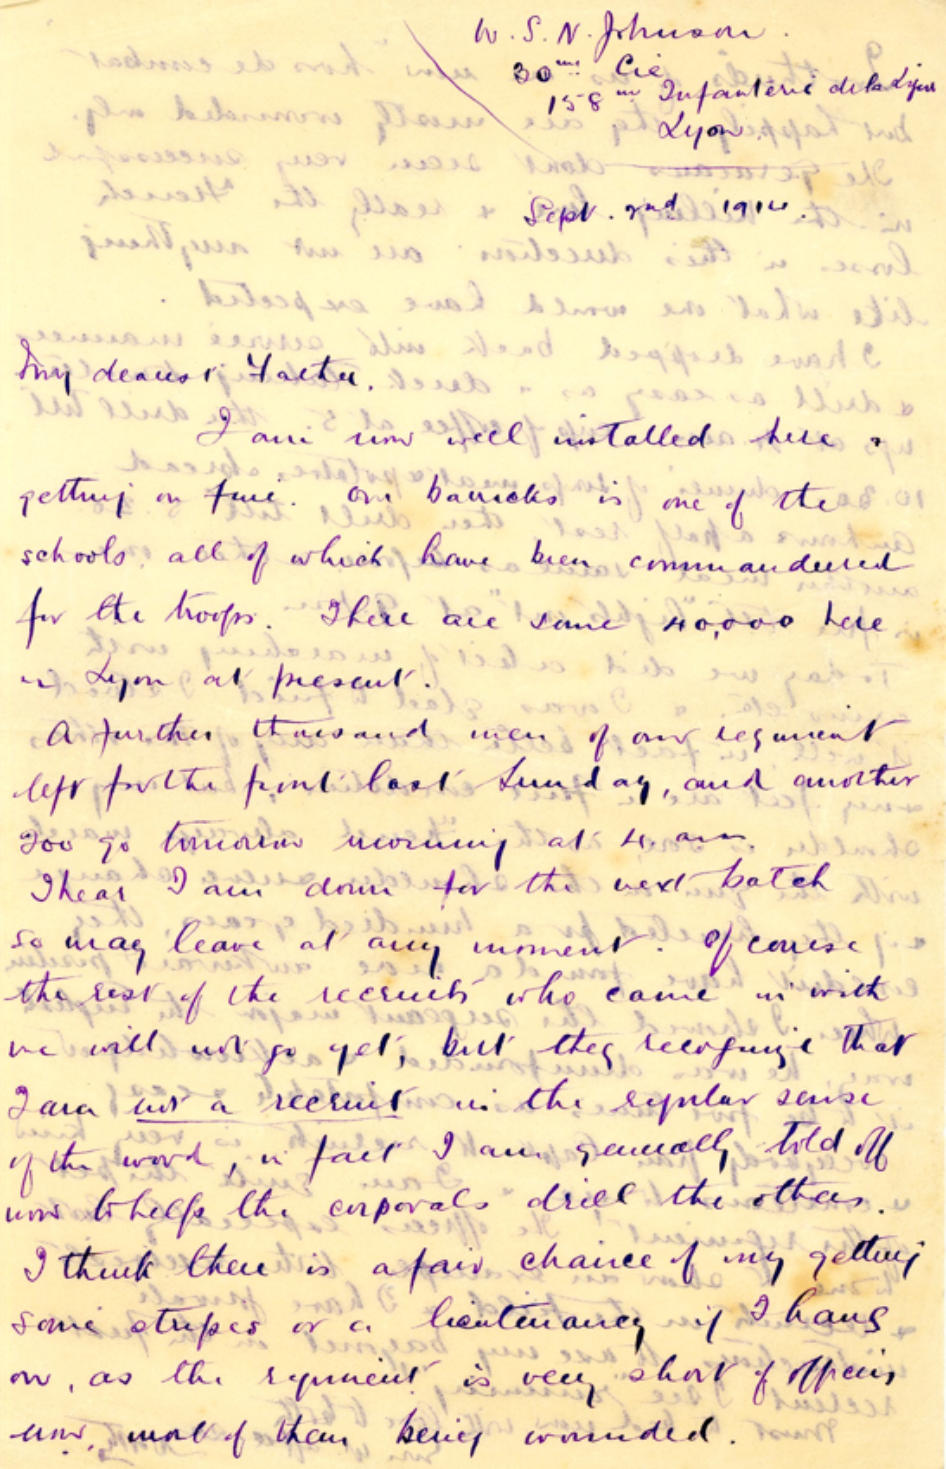 W. S. N. Johnson.
30me Cie
158me Infanterie de la Ligne
Lyon.
Sept. 2nd 1914.
My dearest Father,
I am now well installed here &
getting on fine. Our barracks is one of the
schools, all of which have been commandeered
for the troops. There are some 40,000 here
in Lyon at present.
A further thousand men of our regiment
left for the front last Sunday, and another
200 go tomorrow morning at 4. am.
I hear I am down for the next batch
so may leave at any moment. Of course
the rest of the recruits who came in with
me will not go yet, but they recognize that
I am not a recruit in the regular sense
of the word, in fact I am generally told off
now to help the corporals drill the others.
I think there is a fair chance of my getting
some stripes or a lieutenancy if I hang
on, as the regiment is very short of officers
now, most of them being wounded.